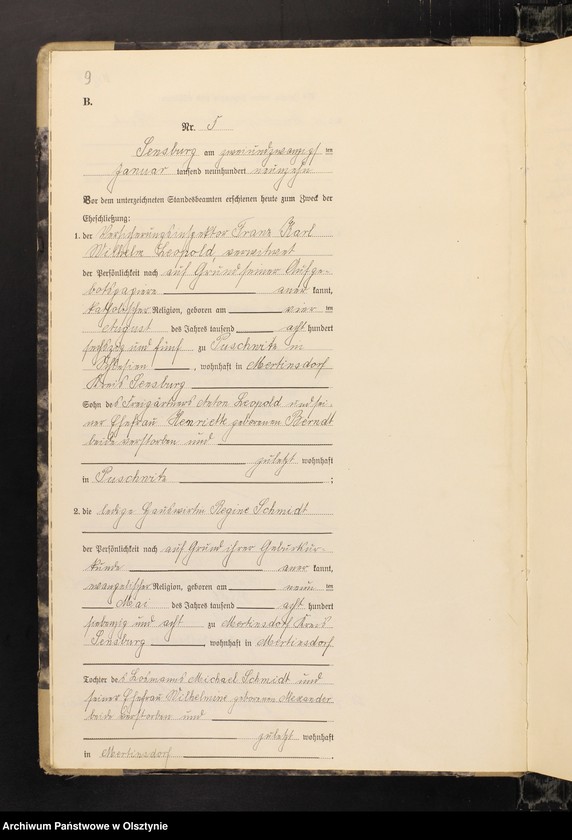 9
B.
Nr. 5
Sensburg am zweiundzwanzigsten
Januar tausend neunhundert neunzehn
Vor dem unterzeichneten Standesbeamten erschienen heute zum Zweck der
Eheschließung:
1. der Versicherungsinspektor Franz Karl
Wilhelm Leopold, verwitwet
der Persönlichkeit nach auf Grund seiner Aufge-
botspapiere anerkannt,
katholischer Religion, geboren am vierten
August des Jahres tausend achthundert
sechszig und fünf zu Puschwitz in
Schlesien, wohnhaft in Mertinsdorf
Kreis Sensburg
Sohn des Freigärtners Anton Leopold und sei-
ner Ehefrau Henriette geborenen Berndt
beide verstorben und
zuletzt wohnhaft
in Puschwitz ;
2. die ledige Hauswirtin Regine Schmidt
der Persönlichkeit nach auf Grund ihrer Geburtsur-
kunde anerkannt,
evangelischer Religion, geboren am neunten
Mai des Jahres tausend achthundert
siebenzig und acht zu Mertinsdorf Kreis
Sensburg, wohnhaft in Mertinsdorf
Tochter des Losmanns Michael Schmidt und
seiner Ehefrau Wilhelmine geborenen Alexander
beide verstorben und
zuletzt wohnhaft
in Mertinsdorf .
Archiwum Państwowe w Olsztynie